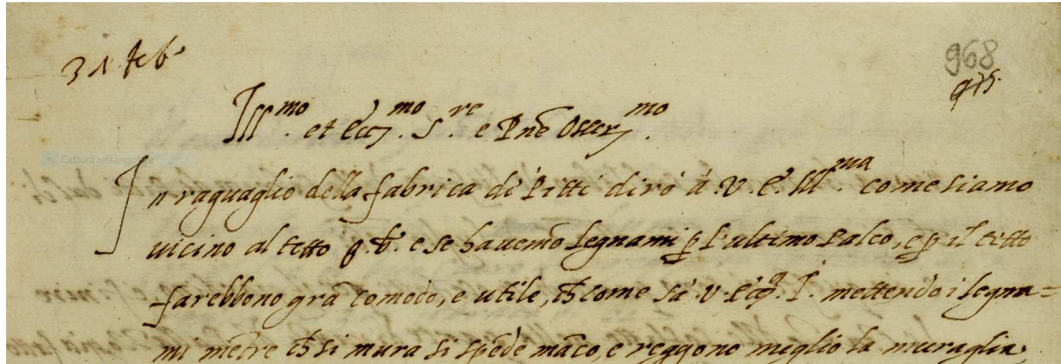 31. feb.
968
975.
Ill.mo et Ecc.mo S.re e P.ne Osser.mo
Cattura rettangolare
In raguaglio della fabrica de Pitti dirò à V. E. Ill.ma come siamo
vicino al tetto e se havemo legnami p l'ultimo palco, e p il tetto
farebbono grā comodo, e utile, ch come sà V. Ecc. I. mettendo i legna=
mi mētre ch si mura si spēde māco, e reggono meglio la muraglia.